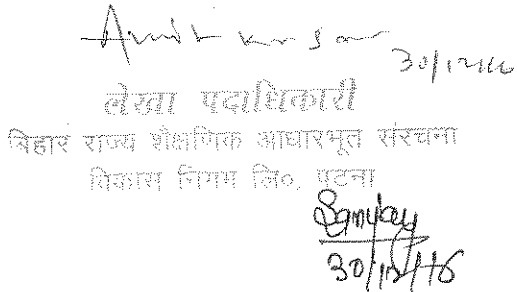 30/12/16
लेखा पदाधिकारी
बिहार राज्य शैक्षणिक आधारभूत संरचना
विकास निगम लि०, पटना
Sanjay
30/12/16